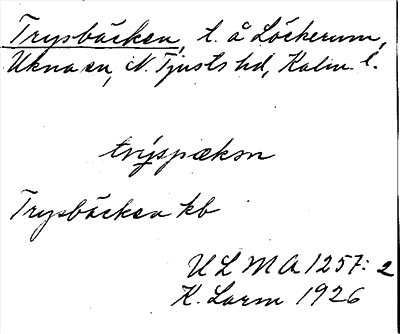 Trysbäcken, t. å Löckerum,
Ukna sn, N. Tjusts hd, Kalm. l.
trýspækən
Trysbäcken kb
ULMA 1257: 2
K. Larm 1926